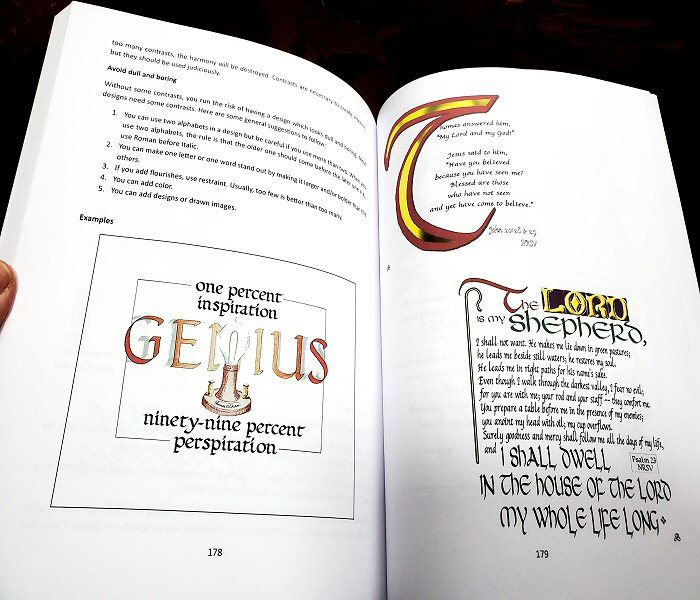 too many contrasts, the harmony will be destroyed. Contrasts are necessary to create
but they should be used judiciously.
Avoid dull and boring
Without some contrasts, you run the risk of having a design which looks dull and boring. Most
designs need some contrasts. Here are some general suggestions to follow:
1. You can use two alphabets in a design but be careful if you use more than two. When you
use two alphabets, the rule is that the older one should come before the later one e.g.
use Roman before Italic.
2. You can make one letter or one word stand out by making it larger and/or bolder than the
others.
3. If you add flourishes, use restraint. Usually, too few is better than too many.
4. You can add color.
5. You can add designs or drawn images.
Examples
one percent
inspiration
GENIUS
ninety-nine percent
perspiration
178
Thomas answered him,
"My Lord and my God!"
Jesus said to him,
"Have you believed
because you have seen me?
Blessed are those
who have not seen
and yet have come to believe."
John
The LORD
is my shepherd,
I shall not want. He makes me lie down in green pastures;
he leads me beside still waters; he restores my soul.
He leads me in right paths for his name's sake.
Even though I walk through the darkest valley, I fear no evil;
for you are with me; your rod and your staff -- they comfort me.
You prepare a table before me in the presence of my enemies;
you anoint my head with oil; my cup overflows.
Surely goodness and mercy shall follow me all the days of my life,
and I shall dwell
Psalm 23
NRSV
in the house of the Lord
my whole life long
179